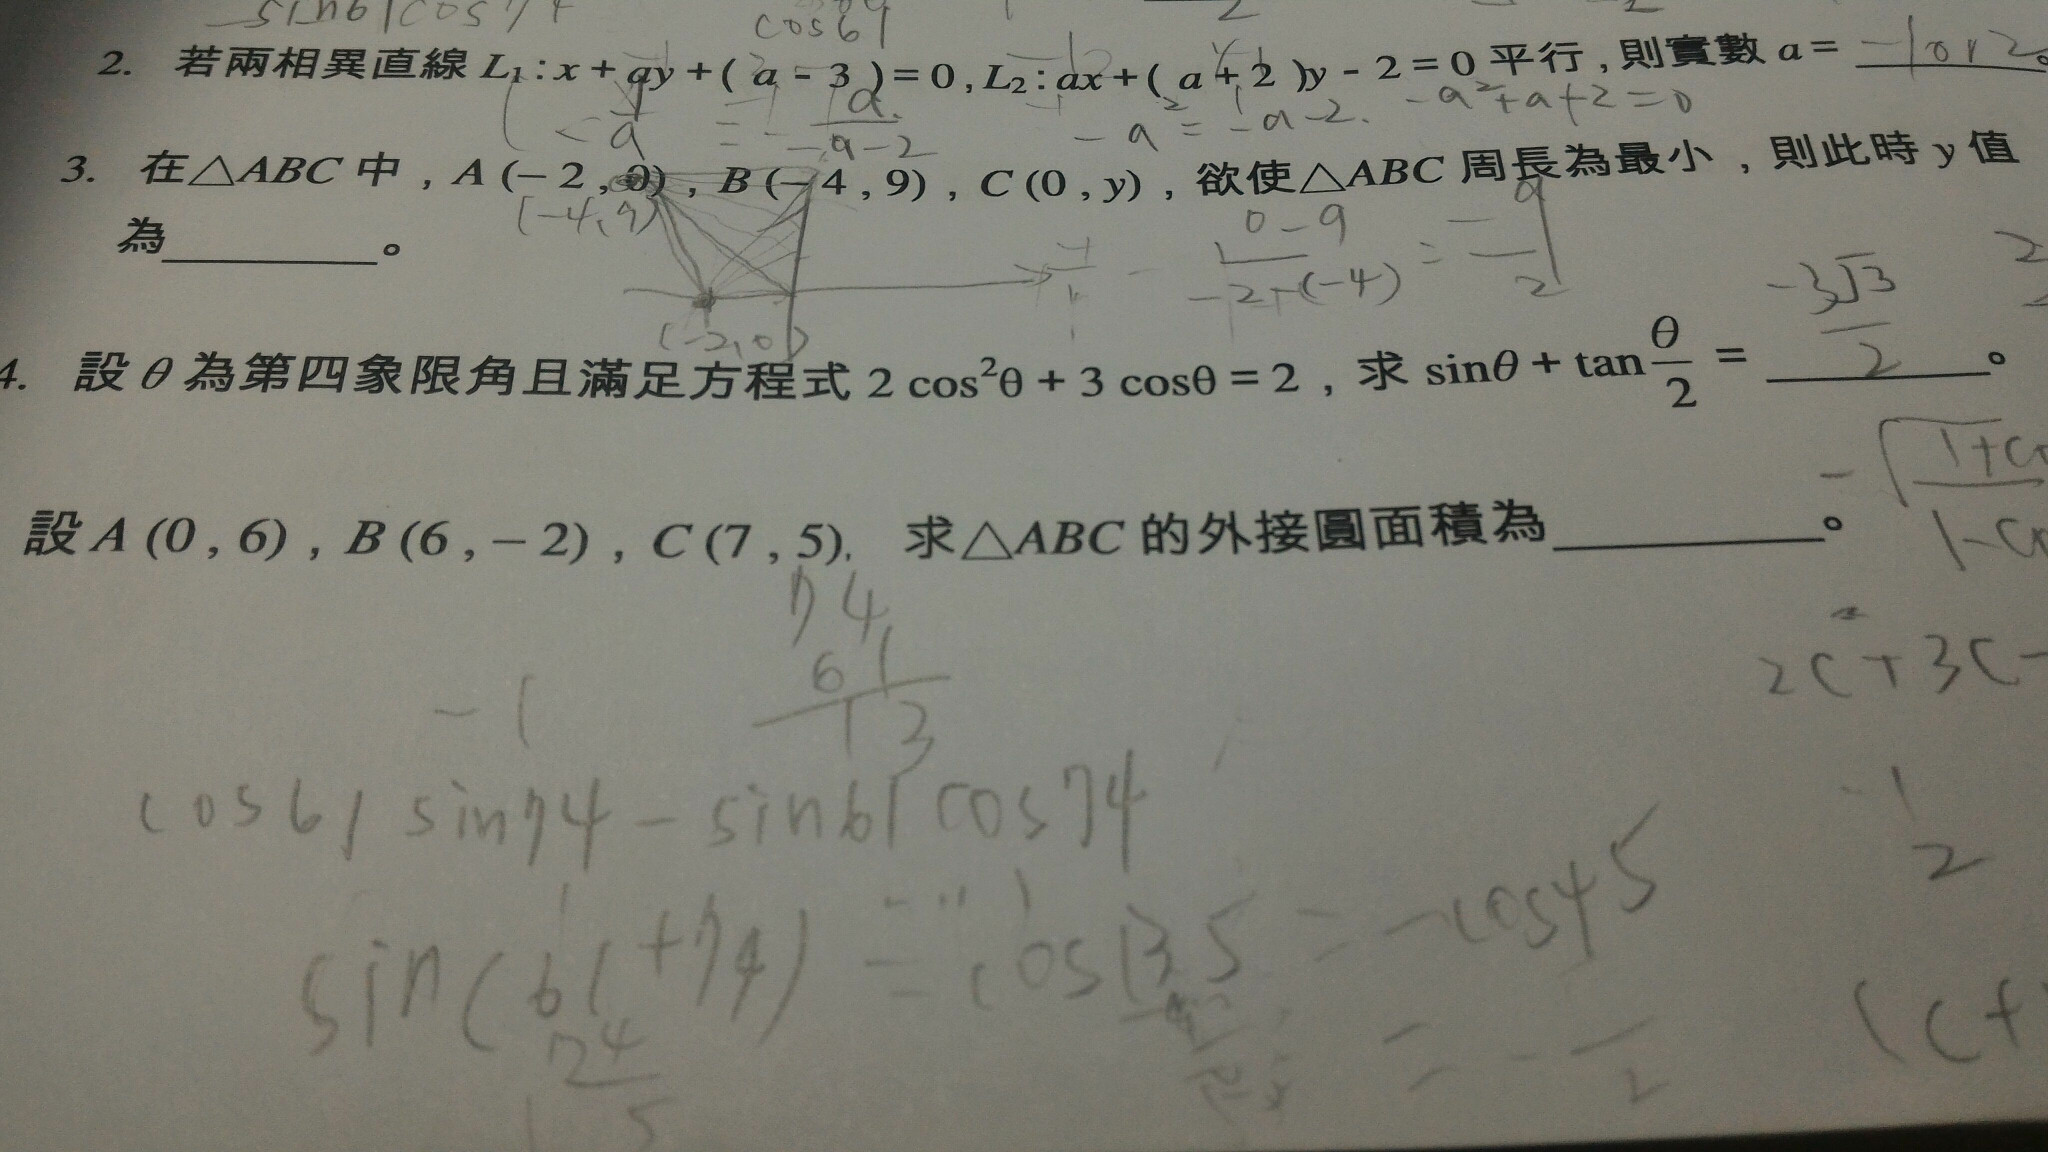 sin61cos74
cos61
2. 若兩相異直線 L₁ : x + ay + ( a - 3 ) = 0 , L₂ : ax + ( a + 2 )y - 2 = 0 平行 , 則實數 a = -1 or 2。
-a² = -a-2. -a²+a+2=0
3. 在△ABC 中 , A (− 2 , 0) , B (− 4 , 9) , C (0 , y) , 欲使△ABC 周長為最小 , 則此時 y 值
為________。
(-4,9)
0-9
-2-(-4)
(-2,0)
4. 設 θ 為第四象限角且滿足方程式 2 cos²θ + 3 cosθ = 2 , 求 sinθ + tan θ/2 = -3√3/2。
設 A (0 , 6) , B (6 , − 2) , C (7 , 5). 求△ABC 的外接圓面積為________。
74
61
13
-1
2c²+3c-
cos61 sin74 - sin61 cos74
-1
2
sin(61+74) = cos135 = -cos45
74